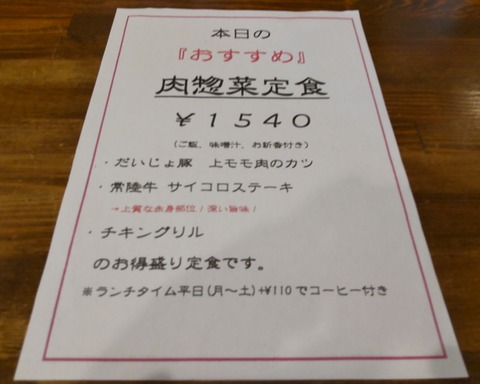 本日の
『おすすめ』
肉惣菜定食
￥1540
(ご飯、味噌汁、お新香付き)
・だいじょ豚 上モモ肉のカツ
・常陸牛 サイコロステーキ
→上質な赤身部位！深い旨味！
・チキングリル
のお得盛り定食です。
※ランチタイム平日(月～土)+¥110でコーヒー付き